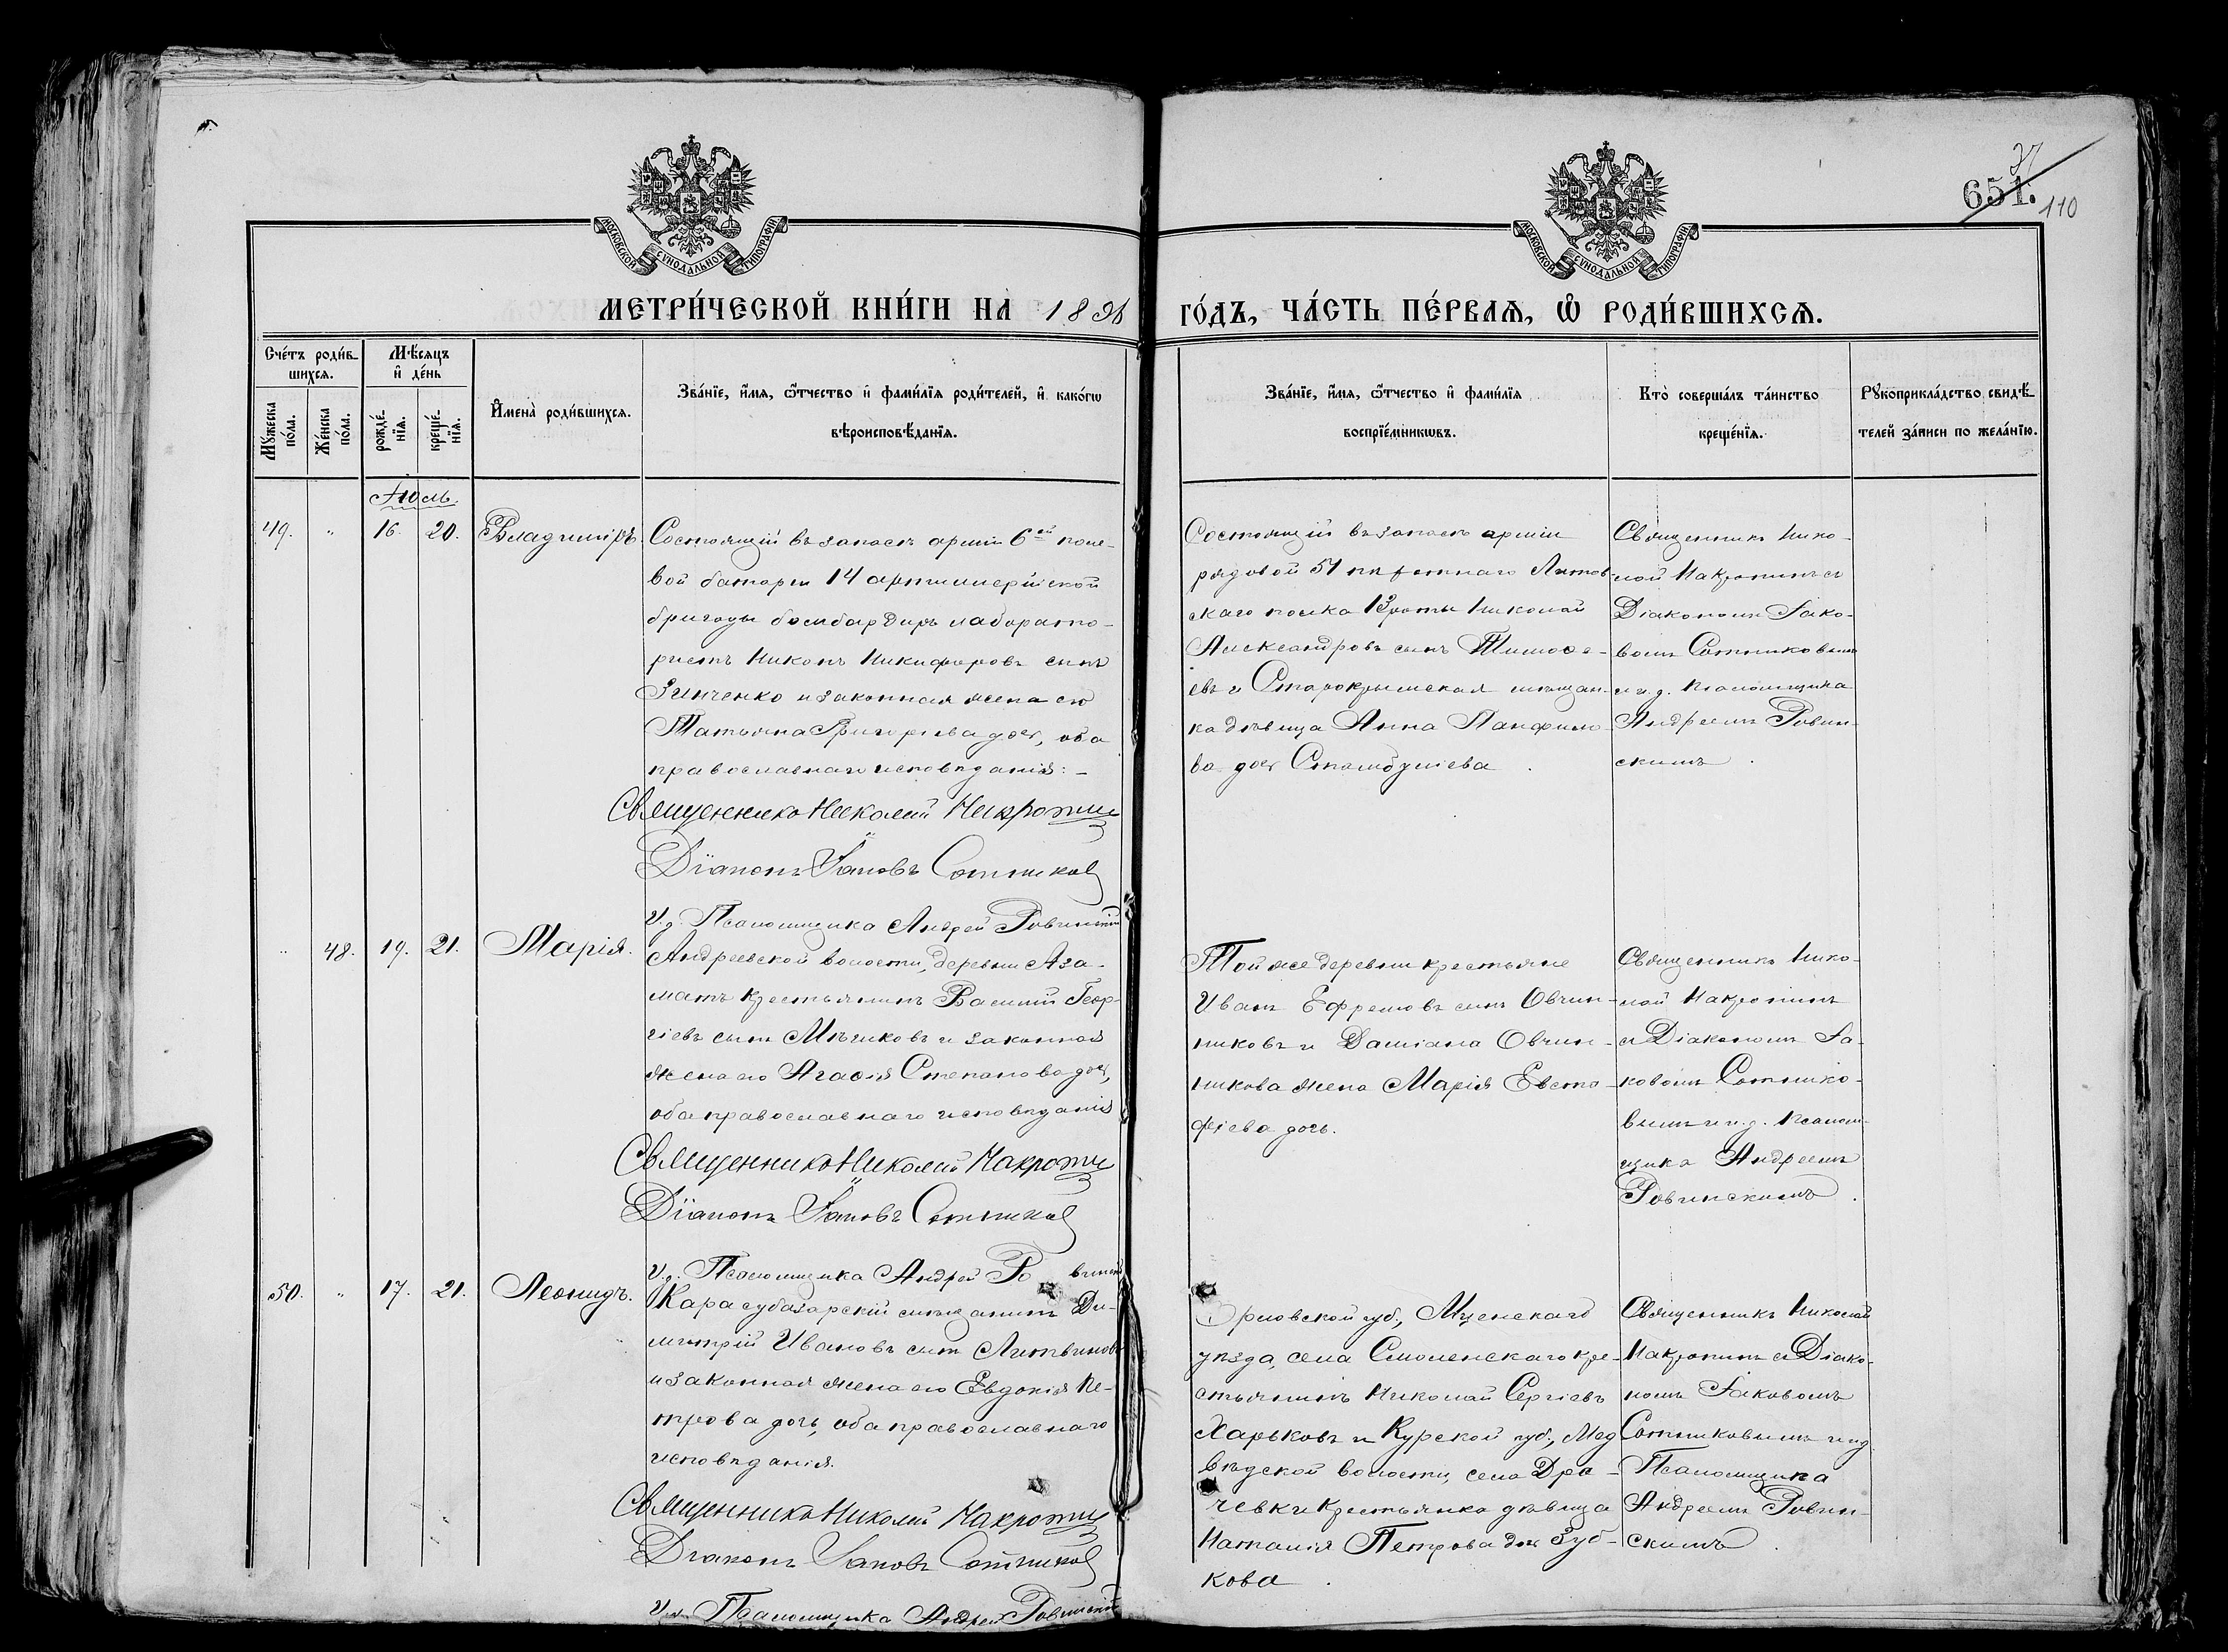 37
651.
110
МОСКОВСКОЙ СѴНОДАЛЬНОЙ ТИПОГРАФІИ
МОСКОВСКОЙ СѴНОДАЛЬНОЙ ТИПОГРАФІИ
МЕТРИ́ЧЕСКОЙ КНИ́ГИ НА 1896
ГО́ДЪ, ЧА́СТЬ ПЕ́РВАѦ, Ѡ҆ РОДИ́ВШИХСѦ.
Сче́тъ роди́в-
шихсѧ.
Мѣ́сѧцъ
и҆ де́нь
Мꙋ́жеска
по́ла.
Же́нска
по́ла.
рожде́-
нїѧ.
креще́-
нїѧ.
И҆мена̀ роди́вшихсѧ.
Зва́нїе, и҆́мѧ, ѻ҆́тчество и҆ фами́лїѧ роди́телей, и҆ како́гѡ
вѣроисповѣ́данїѧ.
Зва́нїе, и҆́мѧ, ѻ҆́тчество и҆ фами́лїѧ
воспрїе́мникѡвъ.
Кто̀ соверша́лъ та́инство
креще́нїѧ.
Рꙋкоприкла́дство свидѣ́-
телей за́писи по жела́нїю.
Іюль
49. " 16. 20. Владиміръ.
Состоящій въ запасѣ арміи 6ой поле-
вой батареи 14 артиллерійской
бригады бомбардиръ лаборато-
ристъ Никонъ Никифоровъ сынъ
Зинченко и законная жена его
Татьяна Григоріева доч, оба
православнаго исповѣданія: -
Священникъ Николай Макротин
Діаконъ Іаковъ Сотников
И.д. Псаломщика Андрей Ровинскій
Состоящій въ запасѣ арміи
рядовой 51 пѣхотнаго Литов-
скаго полка 13 роты Николай
Александровъ сынъ Тимоѳе-
евъ и Старокрымская мѣщан-
ка дѣвица Анна Панфило-
ва доч Стамбулиева.
Священникъ Нико-
лай Макротинъ съ
Діакономъ Іако-
вомъ Сотниковымъ
и и.д. псаломщика
Андреемъ Ровин-
скимъ.
" 48. 19. 21. Марія.
Андреевской волости, деревни Аза-
матъ крестьянинъ Василій Геор-
гіевъ сынъ Мѣчиковъ и законная
жена его Агаѳія Степанова доч,
оба православнаго исповѣданія
Священникъ Николай Макротин
Діаконъ Іаковъ Сотников
И.д. Псаломщика Андрей Ровинскій
Той же деревни крестьяне
Иванъ Ефремовъ сынъ Овчин-
никовъ и Даміана Овчин-
никова жена Марія Евста-
фіева дочь.
Священникъ Нико-
лай Макротинъ
съ Діакономъ Іа-
ковомъ Сотнико-
вымъ и и.д. псалом-
щика Андреемъ
Ровинскимъ.
50. " 17. 21. Леонидъ.
Карасубазарскій мѣщанинъ Ди-
митрій Ивановъ сынъ Литвиновъ
и законная жена его Евдокія Пе-
трова дочь, оба православнаго
исповѣданія.
Священникъ Николай Макротин
Діаконъ Іаковъ Сотников
И.д. Псаломщика Андрей Ровинскій
Орловской губ., Мценскаго
уѣзда, села Смоленскаго кре-
стьянинъ Николай Сергіевъ
Харьковъ и Курской губ., Мед
вѣдской волости, села Дра-
чевки крестьянка дѣвица
Наталія Петрова доч Зуб-
кова.
Священникъ Николай
Макротинъ съ Діако-
номъ Іаковомъ
Сотниковымъ и и.д.
Псаломщика
Андреемъ Ровин-
скимъ.